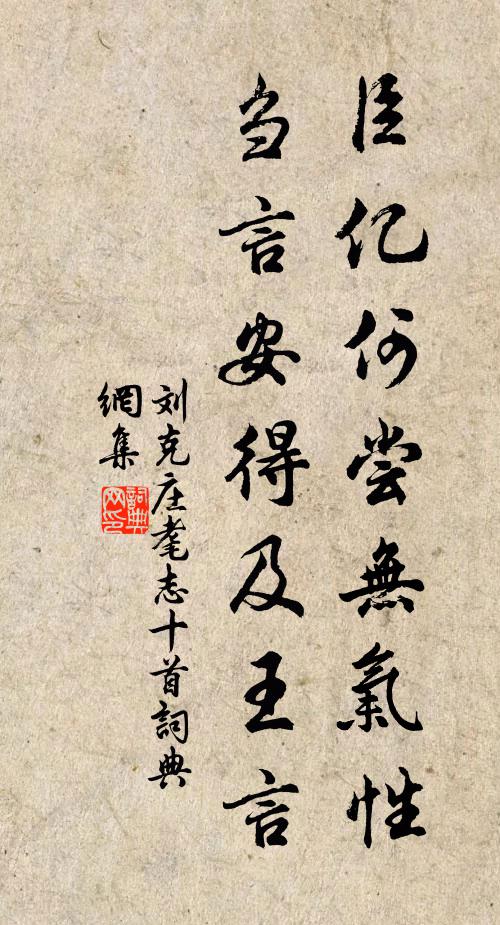 臣亿何尝無氣性
刍言安得及王言
刘克庄耄志十首詞典
網集
詞典
网印